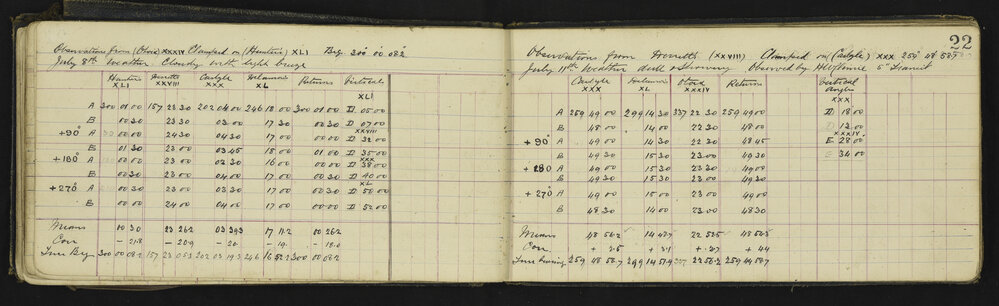 Observations from (Otoia) XXXIV Clamped on (Hunters) XLI Brg 300° 00' 08.2
July 8th Weather Cloudy with light breeze
Hunters Carlyle Returns Vertical
XLI XXVIII XXX XL XLI
A 300 01 00 157 23 30 202 04 00 246 18 00 300 01 00 D 05 00
B 00 30 23 30 03 00 17 30 00 30 D 07 00
XXVIII
+90° A 00 00 24 30 04 30 17 00 00 00 D 32 00
B 01 30 23 00 03 45 18 00 01 00 D 35 00
XXX
+180° A 00 00 23 00 03 30 16 00 00 00 D 38 00
B 00 30 23 00 04 00 17 00 00 30 D 40 00
XL
+270° A 00 30 23 00 03 30 17 00 00 30 D 50 00
B 00 00 24 00 04 00 17 00 00 00 D 52 00
Means 00 30 23 26.2 03 39.3 17 11.2 00 26.2
Corr - 21.8 - 20.9 - 20. - 19. - 18.0
True Brg 300 00 08.2 157 23 05.3 202 03 19.3 246 16 52.2 300 00 08.2
22
Observations from (XXVIII) Clamped on (Carlyle) XXX 259°
July 11th Weather Observed by 5" Transit
Carlyle Otoia Returns Vertical
Angles
XXX XL XXXIV XXX
A 259 49 00 299 14 30 337 22 30 259 49 00 D 18 00
B 48 00 14 00 22 30 48 00 D 13 00
XXXIV
+90° A 49 00 14 30 22 30 48 45 E 28 00
B 49 30 15 30 23 00 49 30 E 34 00
+180 A 49 00 15 30 23 30 49 00
B 49 30 15 30 23 00 49 30
+270° A 49 00 15 00 23 00 49 00
B 48 30 14 00 23 00 48 30
Means 48 56.2 14 22 52.5 48
Corr + + + + 44
True bearing 259 48 299 14 22 56.2 259